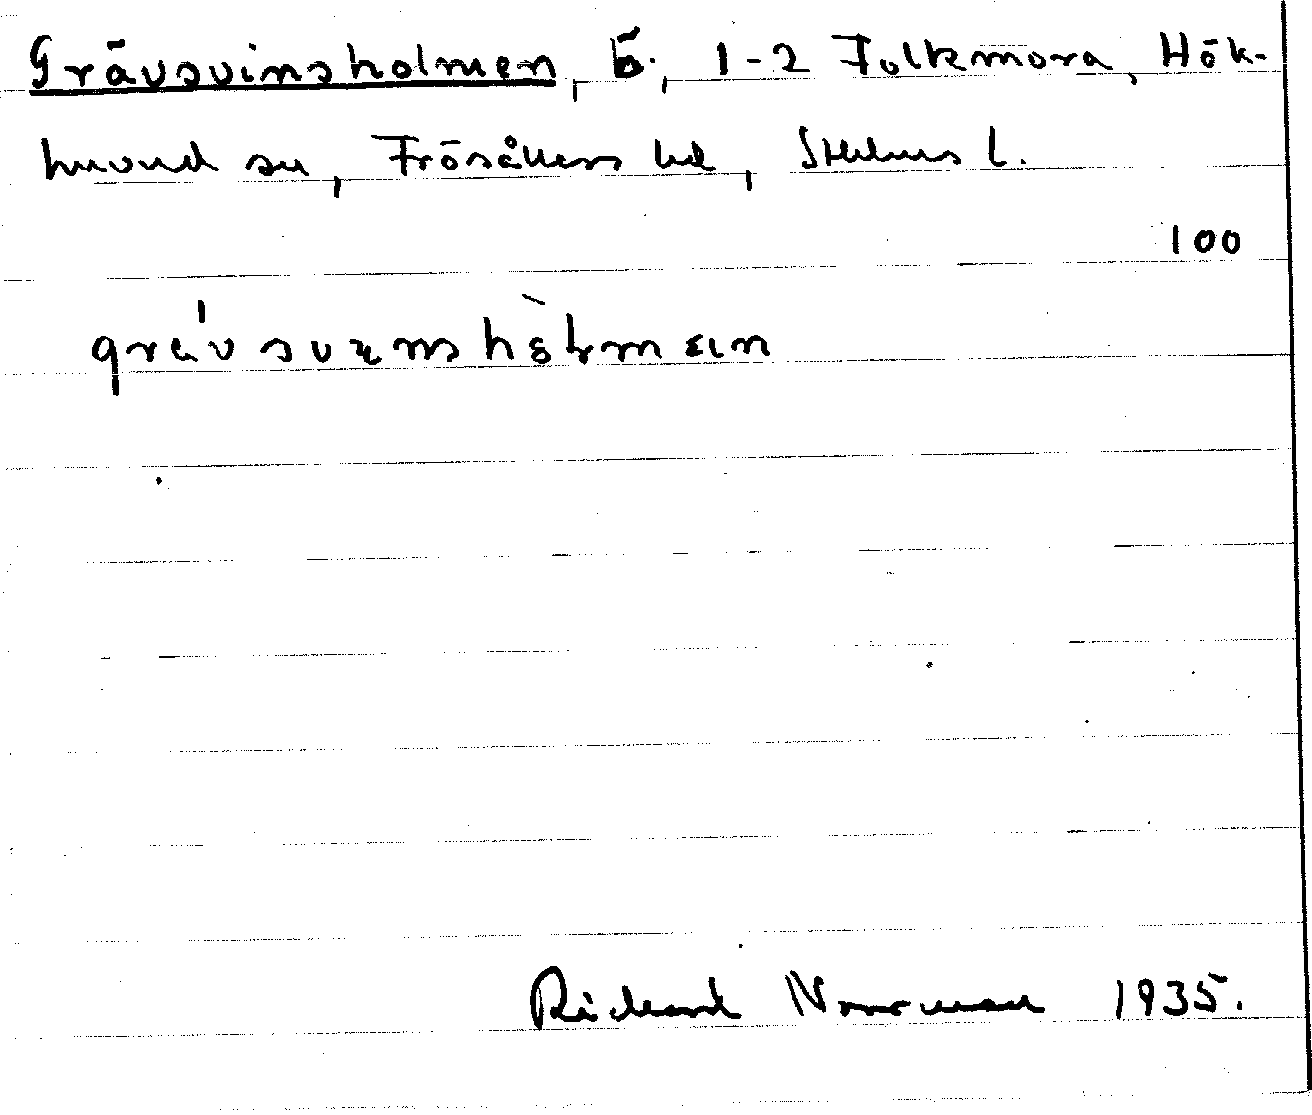 Grävsvinsholmen, ö., 1-2 Folkmora, Hök-
huvud sn, Frösåkers hd, Sthlms l.
100
Richard Norrman 1935.